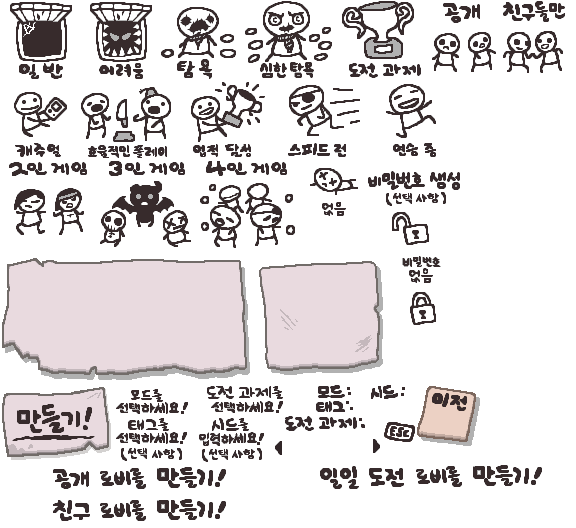 공개 친구들만
일반 어려움 탐욕 심한 탐욕 도전 과제
캐주얼 효율적인 플레이 업적 달성 스피드 런 연승 중
2인 게임 3인 게임 4인 게임
없음
비밀번호 생성
(선택 사항)
비밀번호
없음
만들기!
모드를
선택하세요!
태그를
선택하세요!
(선택 사항)
도전 과제를
선택하세요!
시드를
입력하세요!
(선택 사항)
모드: 시드:
태그:
도전 과제:
이전
ESC
공개 로비를 만들기!
일일 도전 로비를 만들기!
친구 로비를 만들기!